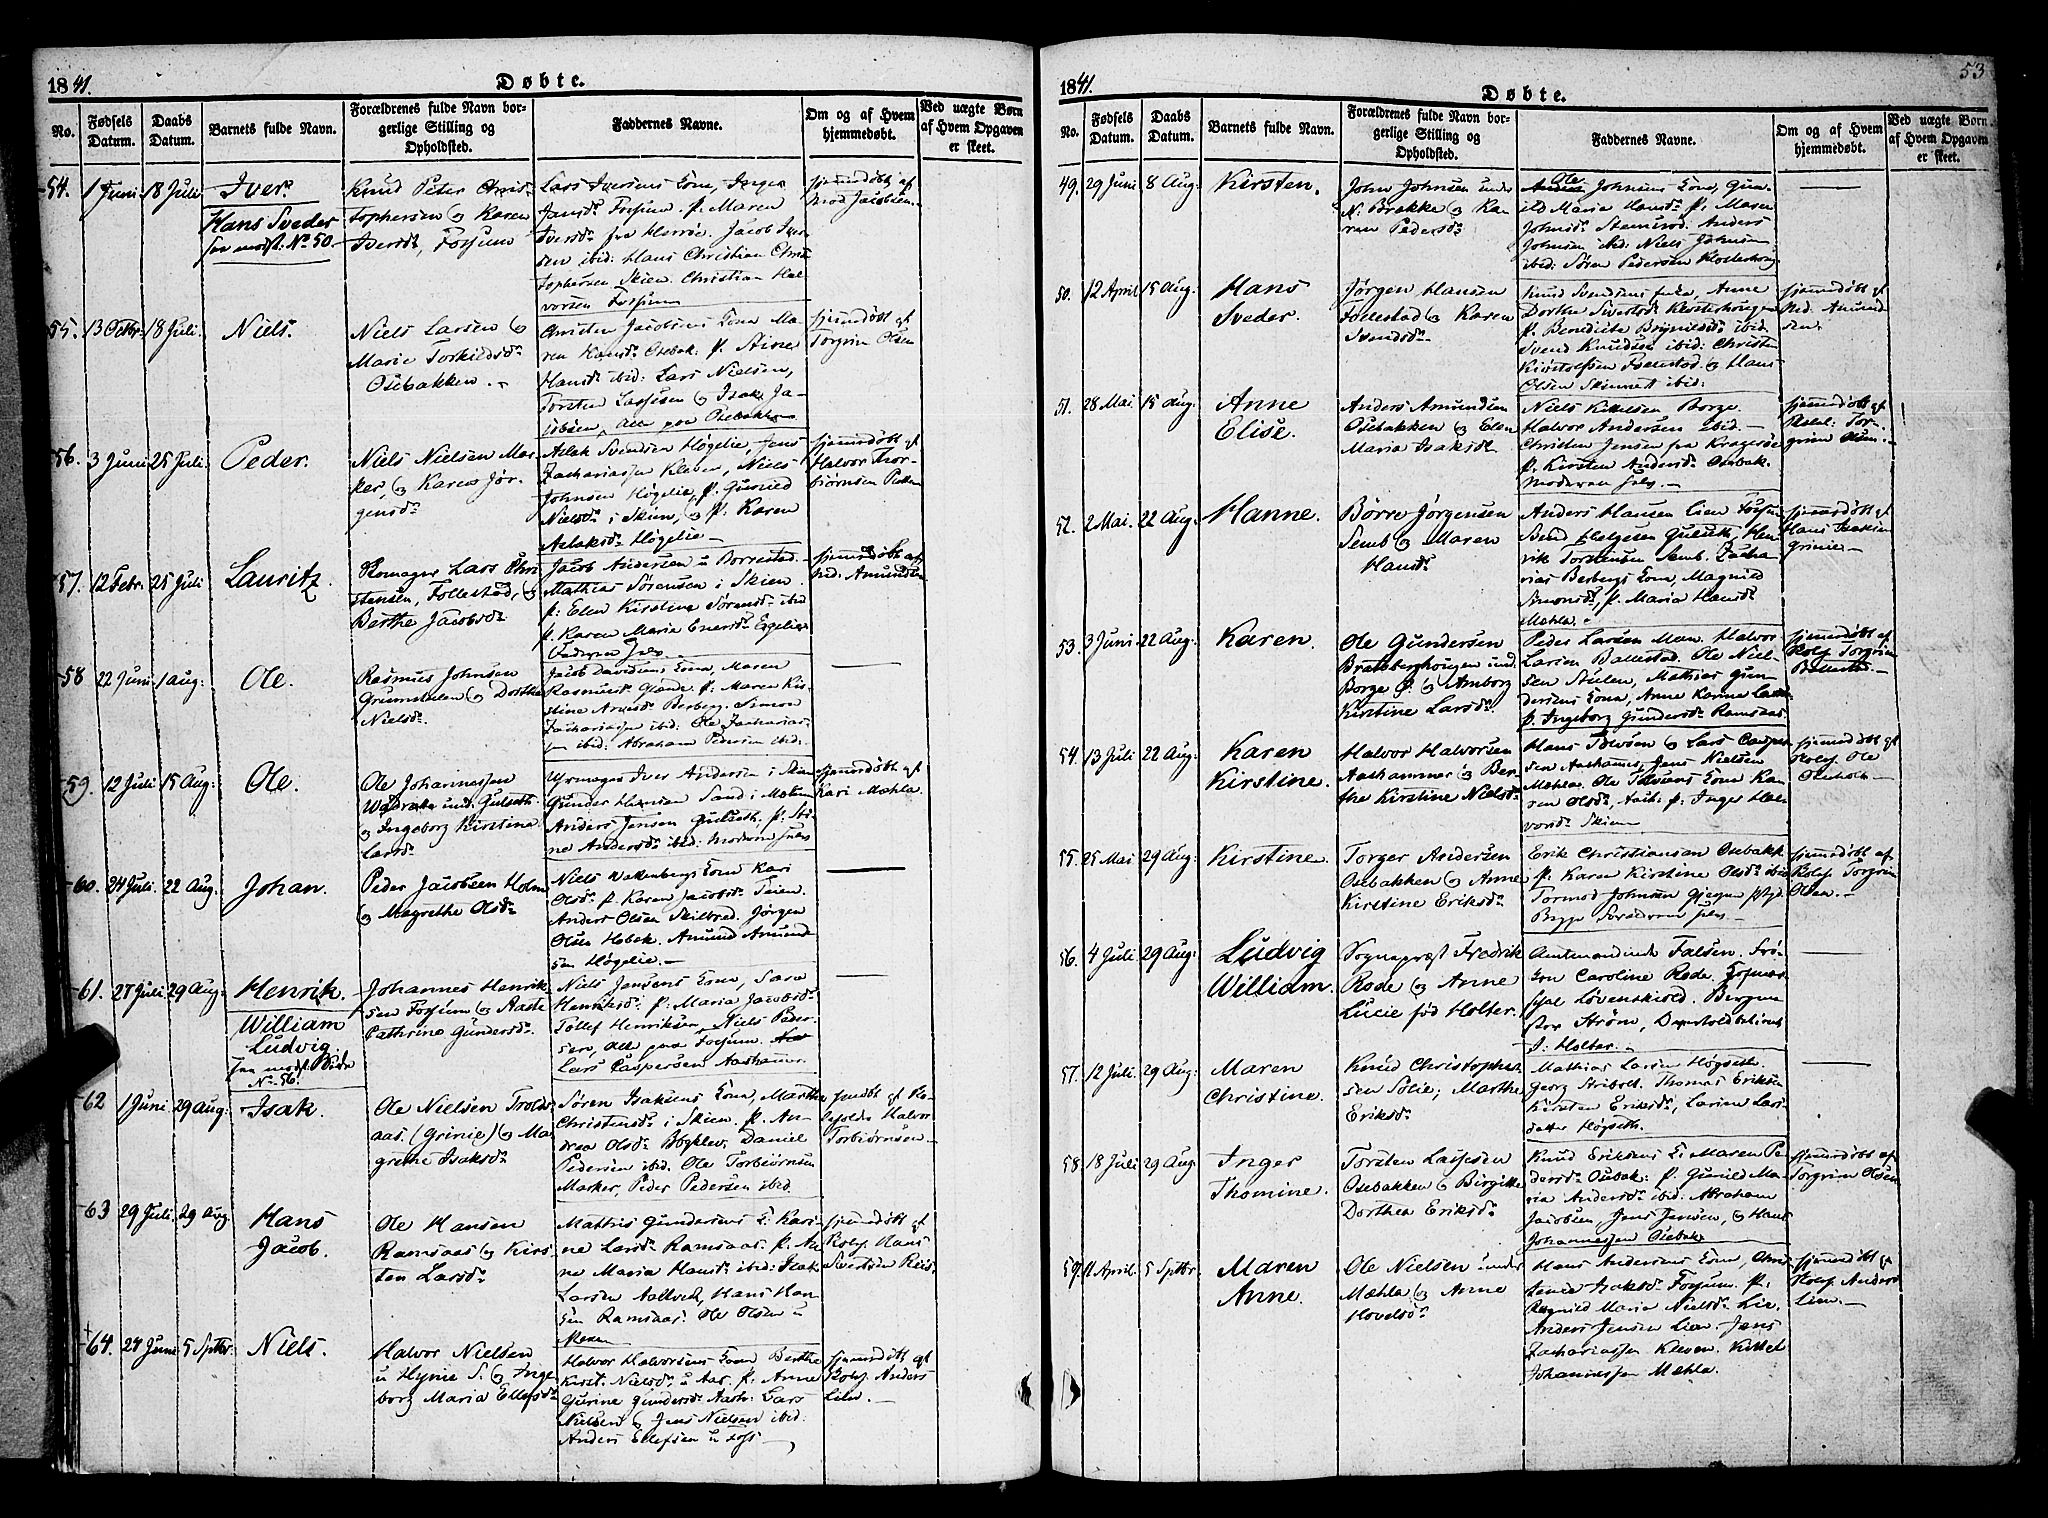 1841.
Døbte.
No.
Fødsels Datum.
Daabs Datum.
Barnets fulde Navn.
Forældrenes fulde Navn borgerlige Stilling og Opholdsted.
Faddernes Navne.
Om og af Hvem hjemmedøbt.
Ved uægte Børn af Hvem Opgaven er skeet.
54. 1 Juni 18 Juli Iver.
Hans Sveder
No 50.
Knud Peter Chris-
tophersen og Karen
Iversd., Fossum
Lars Iversens Kone, Inger
Jansd. Fossum. p. Maren
Iversd. fra Herrøe. Jacob Iver-
sen ibid: Hans Christian Chris-
tophersen Skien. Christian Hal-
vorsen Fossum
hjemmedøbt af
Mod Jacobsen.
55. 13 Octbr. 18 Juli. Niels.
Niels Larsen og
Marie Torkildsd.
Osebakken.
Christen Jacobsens Kone Ma-
ren Hansd. Osebak. p.
Hansd. ibid: Lars Nielsen,
Torsten Lassesen og Isak Ja-
cobsen, alle paa Osebakken
hjemmedøbt af
Torgrim Olsen
56. 3 Juni 25 Juli. Peder.
Niels Nielsen Mar-
ker, og Karen Jør-
gensd.
Aslak Svendsen Høgelie, Jens
Zachariassen Kleven, Niels
Johnsen Høgelie, p. Gunild
Nielsd. i Skien, og p. Karen
Aslaksd. Høgelie
hjemmedøbt af
Halvor Thor-
biørnsen
57. 12 Febr. 25 Juli Lauritz.
Lars Chri-
stensen, Follestad, og
Berthe Jacobsd.
Jacob Andersen u Borrestad.
Mathias Sørensen i Skien.
p. Elen Kirstine Sørensd. ibid
p. Karen Maria
Faderen selv
hjemmedøbt af
Amundsen
58 22 Juni 1 Aug: Ole.
Rasmus Johnsen
og Dorthe
Nielsd.
Jacob Davidsens Kone, Maren
Rasmusd. p. Maren Kir-
stine Berberg. Simon
Zachariassen ibid. Ole Zacharias-
sen ibid: Abraham Pedersen ibid:
59. 12 Juli 15 Aug: Ole.
Ole Johannessen
und. Gulseth
og Ingeborg Kirstine
Larsd.
Uhrmager Iver Andersen i Skien
Gunder Hansen Sand i
Anders Jensen Gulseth. p.
Andersd. ibid: Moderen selv
hjemmedøbt af
Kari Mæhla.
60. 24 Juli. 22 Aug: Johan.
Peder Jacobsen Holm
og Magrethe Olsd.
Niels Kone Kari
Olsd. p. Karen Jacobsd.
Anders Olsen Skilbred. Jørgen
Olsen Amund Amund-
sen Høgelie.
61. 27 Juli 29 Aug: Henrik.
William
Ludvig.
No 56.
Johannes Henrik-
sen Fossum og Aaste
Cathrine Gundersd.
Niels Jansens Kone, Sara
Henriksd: p: Maria Jacobsd.
Tollef Henriksen, Niels Peder-
sen, alle paa Fossum.
Lars Caspersen Aashamer.
62 1 Juni 29 Aug: Isak.
Ole Nielsen Trolds-
aas. (Grinie) og Ma-
grethe Isaksd.
Søren Isaksens Kone, Marthe
Christensd. i Skien. p. An-
drea Olsd. Daniel
Pedersen ibid. Ole Torbiørnsen
Marker, Peder Pedersen ibid.
Halvor
Torbiørnsen.
63 29 Juli. 29 Aug. Hans
Jacob.
Ole Hansen
Ramsaas og Kirs-
ten Larsd.
Mathis Gundersens K. Kari-
ne Larsd. Ramsaas. p. An-
ne Maria Hansd. ibid: Isak
Larsen Hans Han-
sen Ramsaas. Ole Olsen u
Meen
hjemmedøbt af
Hans
Sivertsen
64. 24 Juni 5 Sptbr. Niels.
Halvor Nielsen
u Hynie S. og Inge-
borg Maria Ellefsd.
Halvor Halvorsens Kone Berthe
Kirst. Nielsd. u Aas. p. Anne
Gurine Gundersd. Aash. Lars
Nielsen og Jens Nielsen ibid.
Anders Ellefsen u Foss
hjemmedøbt af
Anders
Lien.
1841.
Døbte.
53
No.
Fødsels Datum.
Daabs Datum.
Barnets fulde Navn.
Forældrenes fulde Navn borgerlige Stilling og Opholdsted.
Faddernes Navne.
Om og af Hvem hjemmedøbt.
Ved uægte Børn af Hvem Opgaven er skeet.
49. 29 Juni 8 Aug: Kirsten.
John Johnsen under
N: Brække og Ka-
ren Pedersd.
Ole Johnsens Kone, Gun-
ild Maria Hansd. p. Maren
Johnsd. Stensrød. Anders
Johnsen ibid: Niels Johnsen
ibid: Søren Pedersen Klosterhoug.
50. 12 April 15 Aug: Hans
Sveder.
Jørgen Hansen
Follestad og Karen
Svendsd.
Knud Svendsens Enke, Anne
Dorthe Sivertsd. Klosterhougen
p. Benedicte Brynildsd. ibid.
Svend Knudsen ibid: Christen
Kirstofsen Follestad og Hans
Olsen ibid:
hjemmedøbt af
Amund-
sen.
51. 28 Mai. 15 Aug. Anne
Elise.
Anders Amundsen
Osebakken og Elen
Maria Isaksd.
Niels Kittelsen Borge.
Halvor Andersen ibid.
Christen Jensen fra Kragerøe
p. Kirsten Andersd. Osebak.
Moderen selv.
hjemmedøbt af
Tor-
grim Olsen.
52. 2 Mai. 22 Aug: Hanne.
Børre Jørgensen
Semb og Maren
Hansd.
Anders Hansen Lien Fossum
Helgesen Hen-
rik Torstensen Semb. Zacha-
rias Berbergs Kone, Magnild
Simonsd., p. Maria Hansd.
Mæhla.
hjemmedøbt af
Hans Isaksen
Grinie
53. 3 Juni 22 Aug: Karen.
Ole Gundersen
Bratsberghougen und.
Borge P. og Amborg
Kirstine Larsd.
Peder Larsen Moen. Halvor
Larsen Ballestad. Ole Niel-
sen Mathias Gun-
dersens Kone, Anne Karine
p. Ingeborg Gundersd. Ramsaas
hjemmedøbt af
Torgrim
Ballestad.
54. 13 Juli 22 Aug: Karen
Kirstine.
Halvor Halvorsen
Aashammer og Ber-
the Kirstine Nielsd.
Hans og Lars Casper-
sen Aashammer, Jens Nielsen
Mæhla. Ole Kone Ka-
ren Olsd., Aash: p. Inger Hal-
vorsd. Skien
hjemmedøbt af
Ole
55. 25 Mai 29 Aug: Kirstine.
Torger Andersen
Osebakken og Anne
Kirstine Eriksd.
Erik Christiansen Osebakk.
p. Karen Kirstine Olsd. ibid
Tormod Johnsen
selv
hjemmedøbt af
Torgrim
Olsen.
56. 4 Juli 29 Aug: Ludvig
William.
Sognepræst Fredrik
Rode og Anne
Lucie fød Holter.
Amtmandinde Falsen. Frø-
ken Caroline Rode. Hofmar-
skal Løvenskiold. Bergme-
ster Strøm,
J: Holter.
57. 12 Juli. 29 Aug: Maren
Christine.
Knud Christopher-
sen Solie; Marthe
Eriksd.
Mathias Larsen Høgseth.
Georg Stribolt. Thomas Eriksen
Kirsten Eriksd., Larine Lars-
datter Høgseth.
58. 18 Juli 29 Aug Inger
Thomine.
Torsten Lassesen
Osebakken og Birgitte
Dorthea Eriksd.
Knud Eriksens K. Maren Pe-
dersd. Osebak. p. Gunild Ma-
ria Andersd. ibid. Abraham
Jacobsen, Jens Jensen, og Hans
Johannessen Osebak
hjemmedøbt af
Torgrim Olsen
59. 11 April. 5 Sptbr. Maren
Anne.
Ole Nielsen under
Mæhla og Anne
Hovelsd.
Hans Andersens Kone,
Isaksd. Fossum. p.
Ragnild Maria Nielsd. Lie.
Anders Jensen Lien. Jens
Zachariassen Kleven. Kittel
Johannessen Mæhla.
hjemmedøbt af
Anders
Lien.